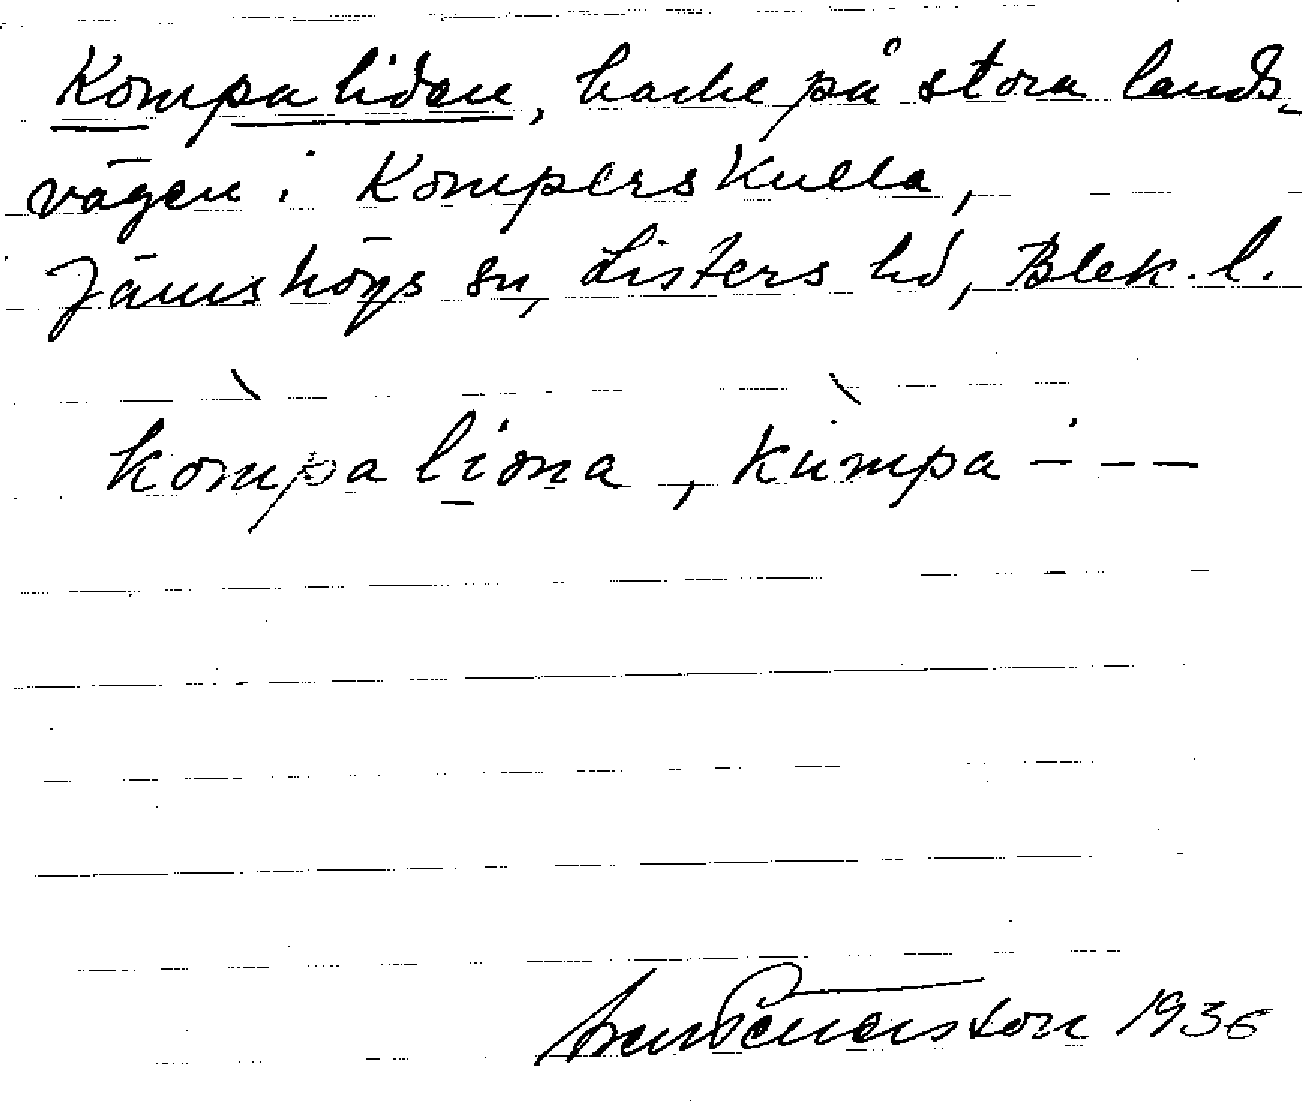 Kompalidan, backe på stora lands-
vägen i Komperskulla,
Jämshögs sn, Listers hd, Blek. l.
kòmpaliona, kùmpa- - - -
1936